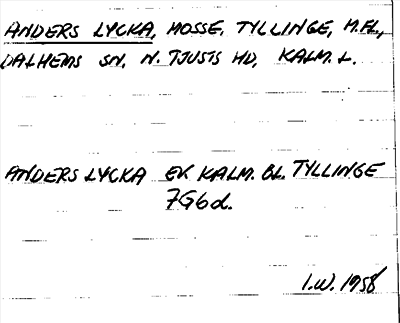 ANDERS LYCKA, MOSSE. TYLLINGE, M.FL.,
DALHEMS SN. N. TJUSTS HD, KALM. L.
ANDERS LYCKA EK KALM. BL. TYLLINGE
7G6d.
I.W. 1958